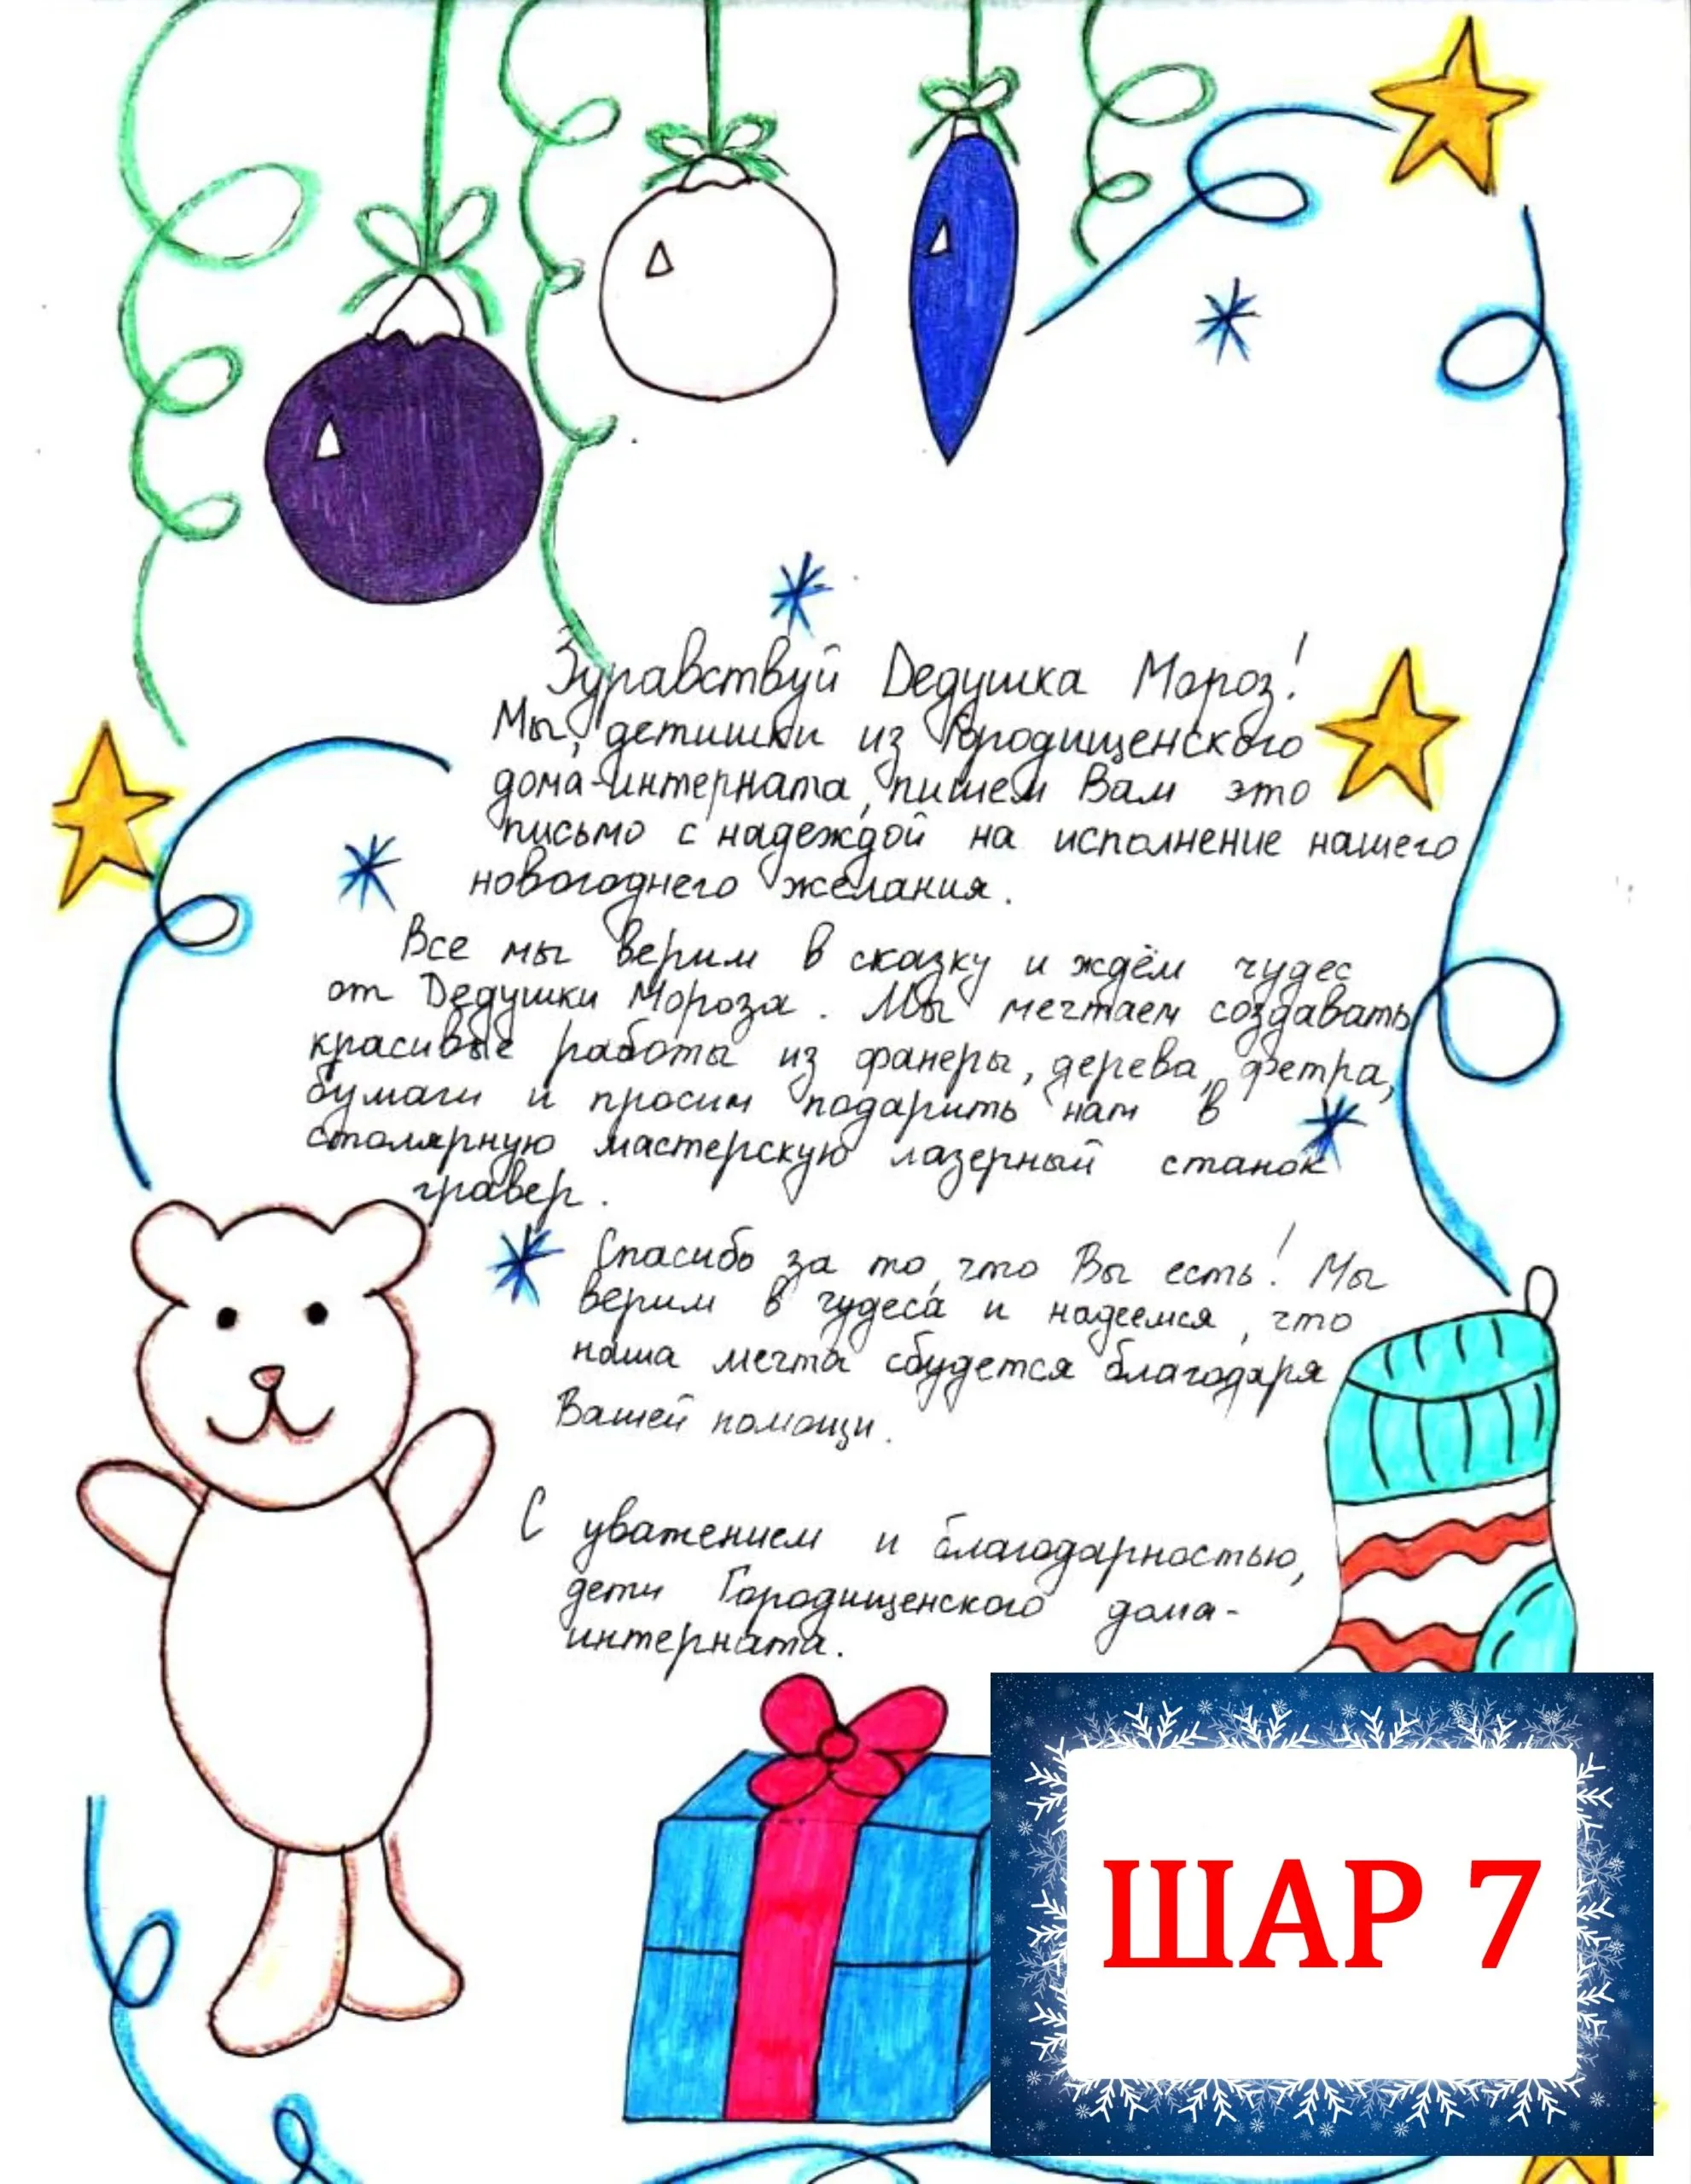 Здравствуй Дедушка Мороз!
Мы, детишки из Городищенского
дома-интерната, пишем Вам это
письмо с надеждой на исполнение нашего
новогоднего желания.
Все мы верим в сказку и ждём чудес
от Дедушки Мороза. Мы мечтаем создавать
красивые работы из фанеры, дерева, фетра,
бумаги и просим подарить нам в
столярную мастерскую лазерный станок
гравер.
Спасибо за то, что Вы есть! Мы
верим в чудеса и надеемся, что
наша мечта сбудется благодаря
Вашей помощи.
С уважением и благодарностью,
дети Городищенского дома-
интерната.
ШАР 7